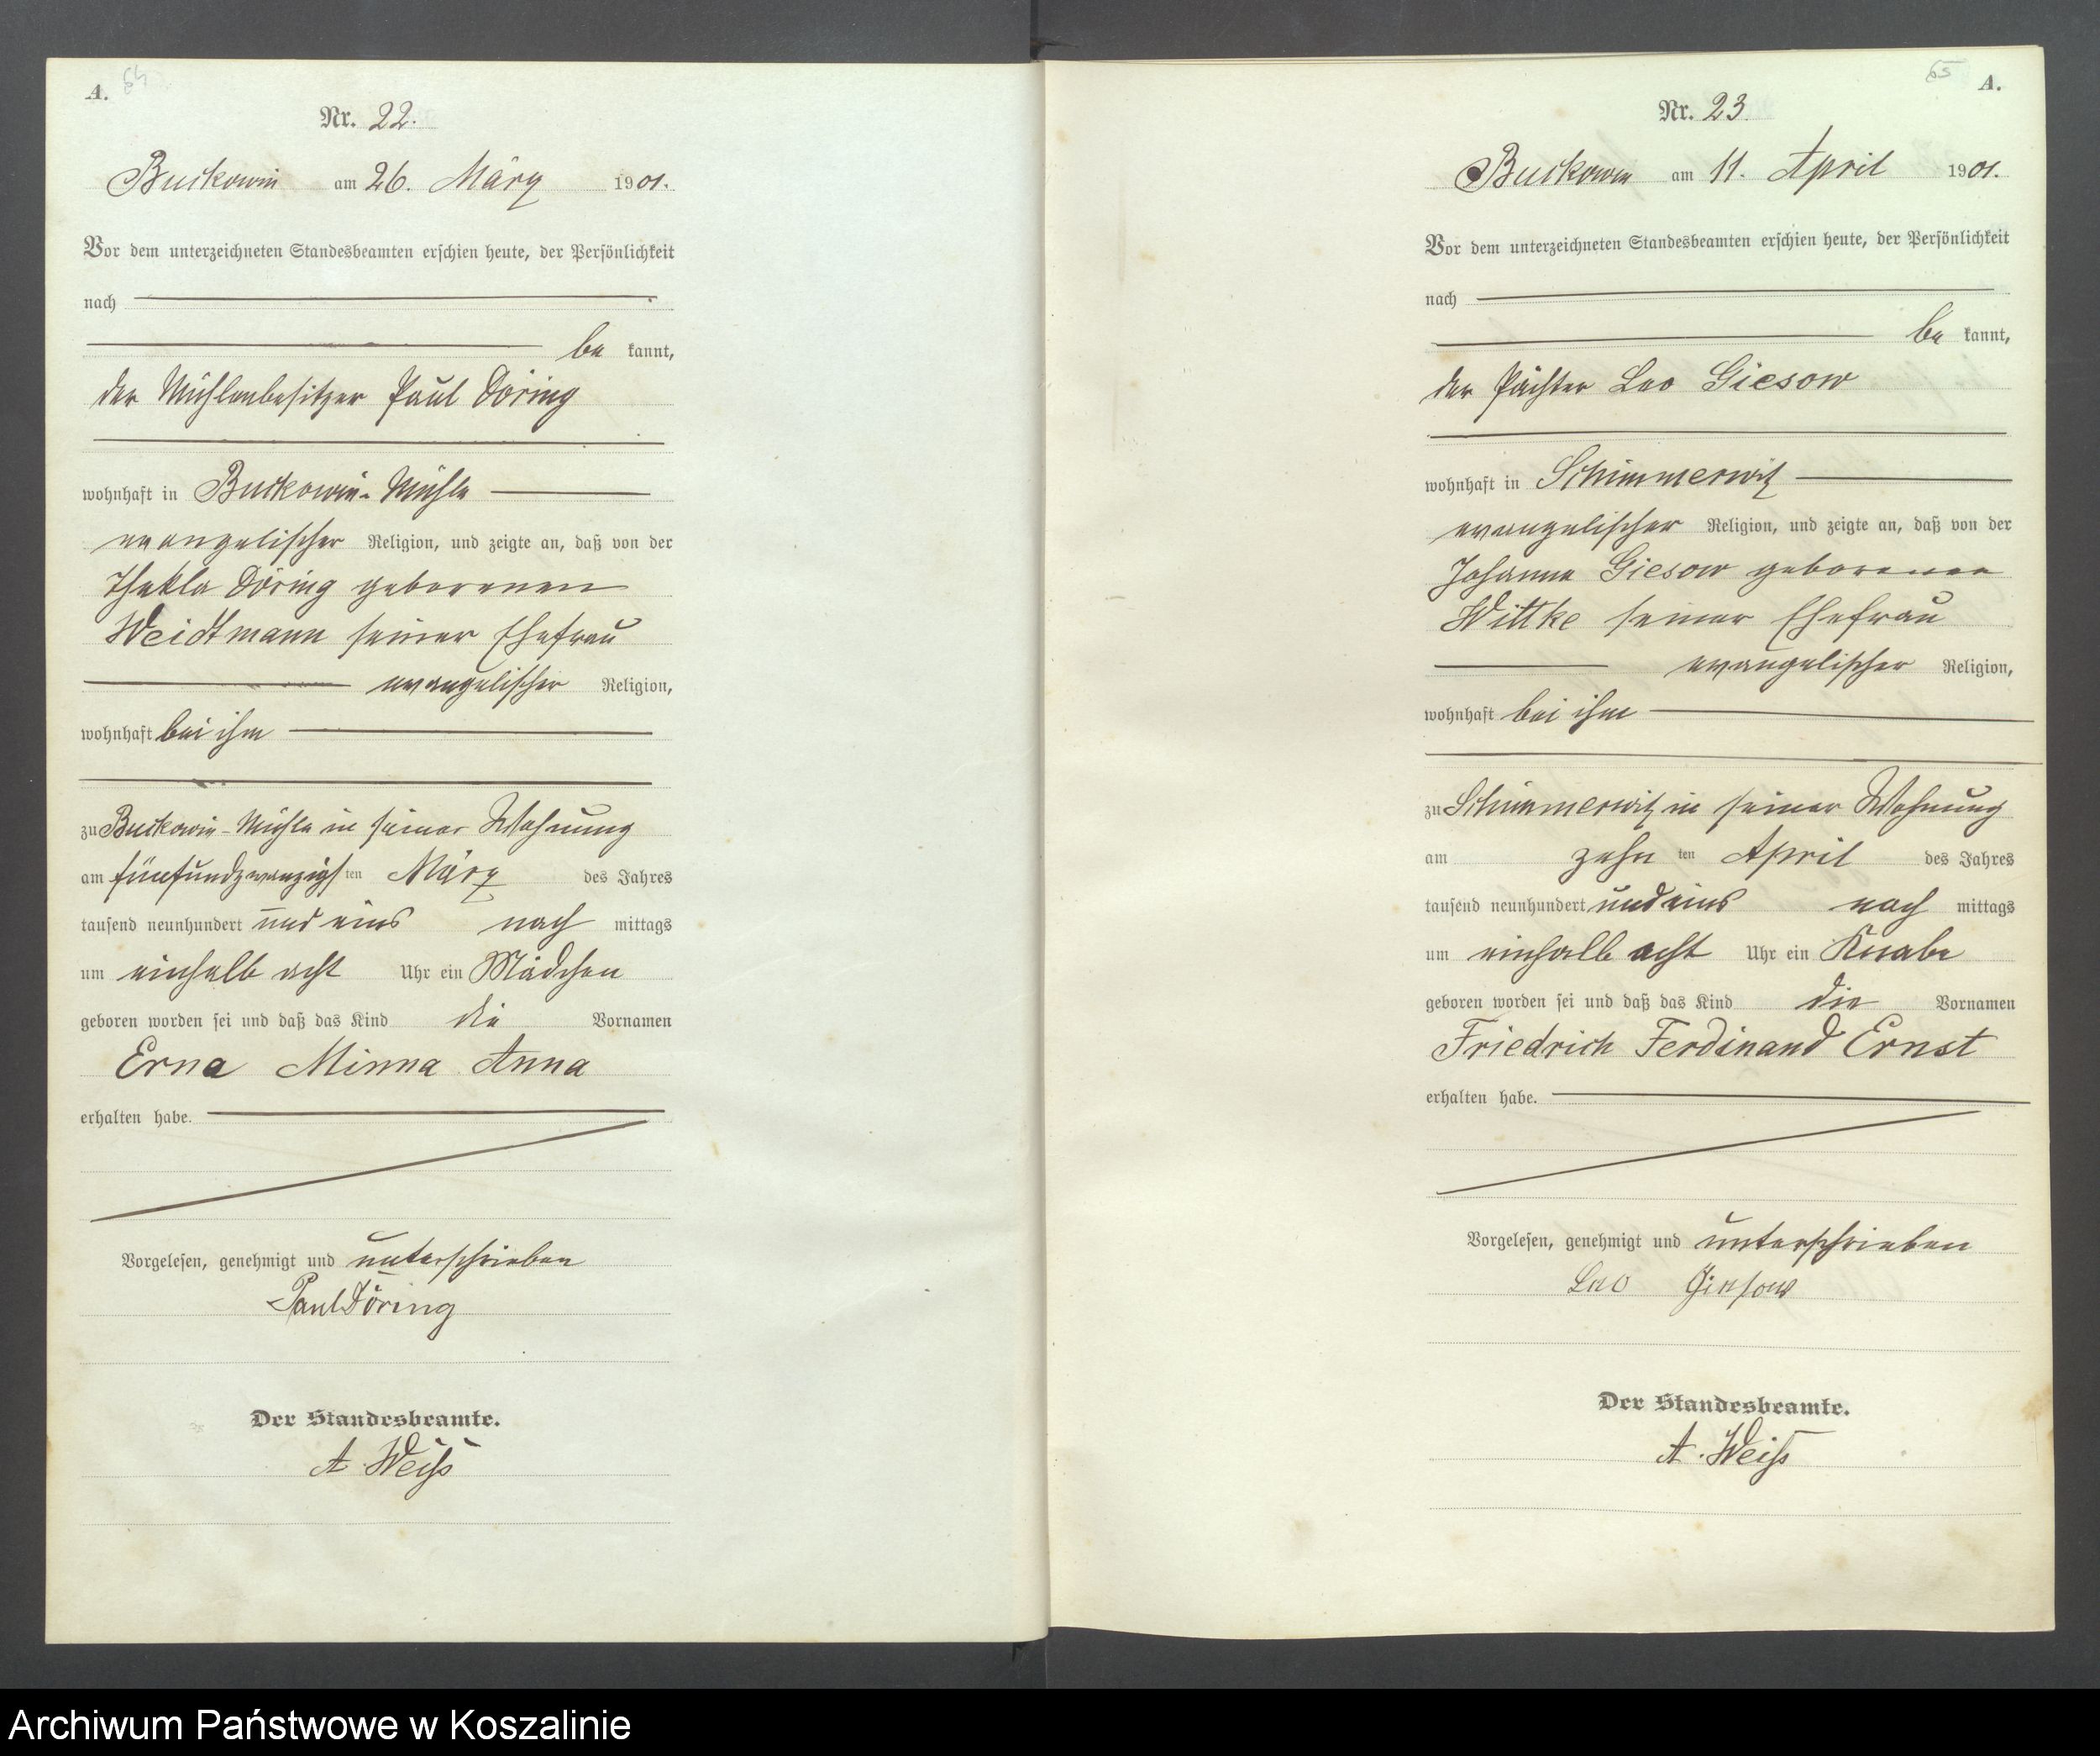 A. 64
Nr. 22.
Buckowin am 26. März 1901.
Vor dem unterzeichneten Standesbeamten erschien heute, der Persönlichkeit
nach
be kannt,
der Mühlenbesitzer Paul Döring
wohnhaft in Buckowin-Mühle
evangelischer Religion, und zeigte an, daß von der
Thekla Döring geborenen
Weidtmann seiner Ehefrau
evangelischer Religion,
wohnhaft bei ihm
zu Buckowin-Mühle in seiner Wohnung
am fünfundzwanzigsten März des Jahres
tausend neunhundert und eins nach mittags
um einhalb acht Uhr ein Mädchen
geboren worden sei und daß das Kind die Vornamen
Erna Minna Anna
erhalten habe.
Vorgelesen, genehmigt und unterschrieben
Paul Döring
Der Standesbeamte.
A. Weiß
65 A.
Nr. 23.
Buckowin am 11. April 1901.
Vor dem unterzeichneten Standesbeamten erschien heute, der Persönlichkeit
nach
be kannt,
der Pächter Leo Giesow
wohnhaft in Schimmerwitz
evangelischer Religion, und zeigte an, daß von der
Johanna Giesow geborenen
Wittke seiner Ehefrau
evangelischer Religion,
wohnhaft bei ihm
zu Schimmerwitz in seiner Wohnung
am zehn ten April des Jahres
tausend neunhundert und eins nach mittags
um einhalb acht Uhr ein Knabe
geboren worden sei und daß das Kind die Vornamen
Friedrich Ferdinand Ernst
erhalten habe.
Vorgelesen, genehmigt und unterschrieben
Leo Giesow
Der Standesbeamte.
A. Weiß
Archiwum Państwowe w Koszalinie